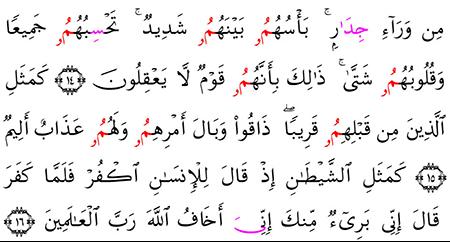 مِن وَرَآءِ جِدَٰرٍۭ ۚ بَأْسُهُمُۥ بَيْنَهُمُۥ شَدِيدٌ ۚ تَحْسِبُهُمُۥ جَمِيعًا
وَقُلُوبُهُمُۥ شَتَّىٰ ۚ ذَٰلِكَ بِأَنَّهُمُۥ قَوْمٌ لَّا يَعْقِلُونَ ﴿١٤﴾ كَمَثَلِ
ٱلَّذِينَ مِن قَبْلِهِمُۥ قَرِيبًا ۖ ذَاقُوا۟ وَبَالَ أَمْرِهِمُۥ وَلَهُمُۥ عَذَابٌ أَلِيمٌ
﴿١٥﴾ كَمَثَلِ ٱلشَّيْطَٰنِ إِذْ قَالَ لِلْإِنسَٰنِ ٱكْفُرْ فَلَمَّا كَفَرَ
قَالَ إِنِّى بَرِىٓءٌ مِّنكَ إِنِّىَ أَخَافُ ٱللَّهَ رَبَّ ٱلْعَٰلَمِينَ ﴿١٦﴾